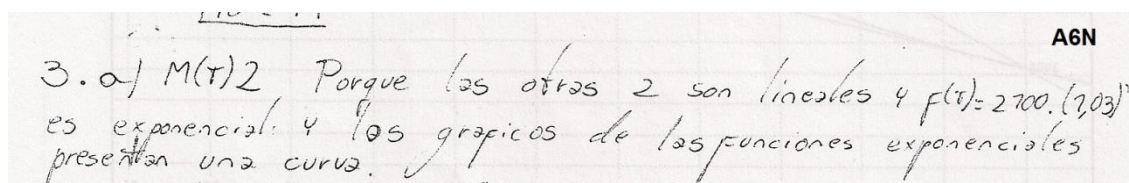 A6N
3. a) M(t)2 Porque las otras 2 son lineales y f(t)= 2700.(1,03)^t
es exponencial. y las graficos de las funciones exponenciales
presentan una curva.